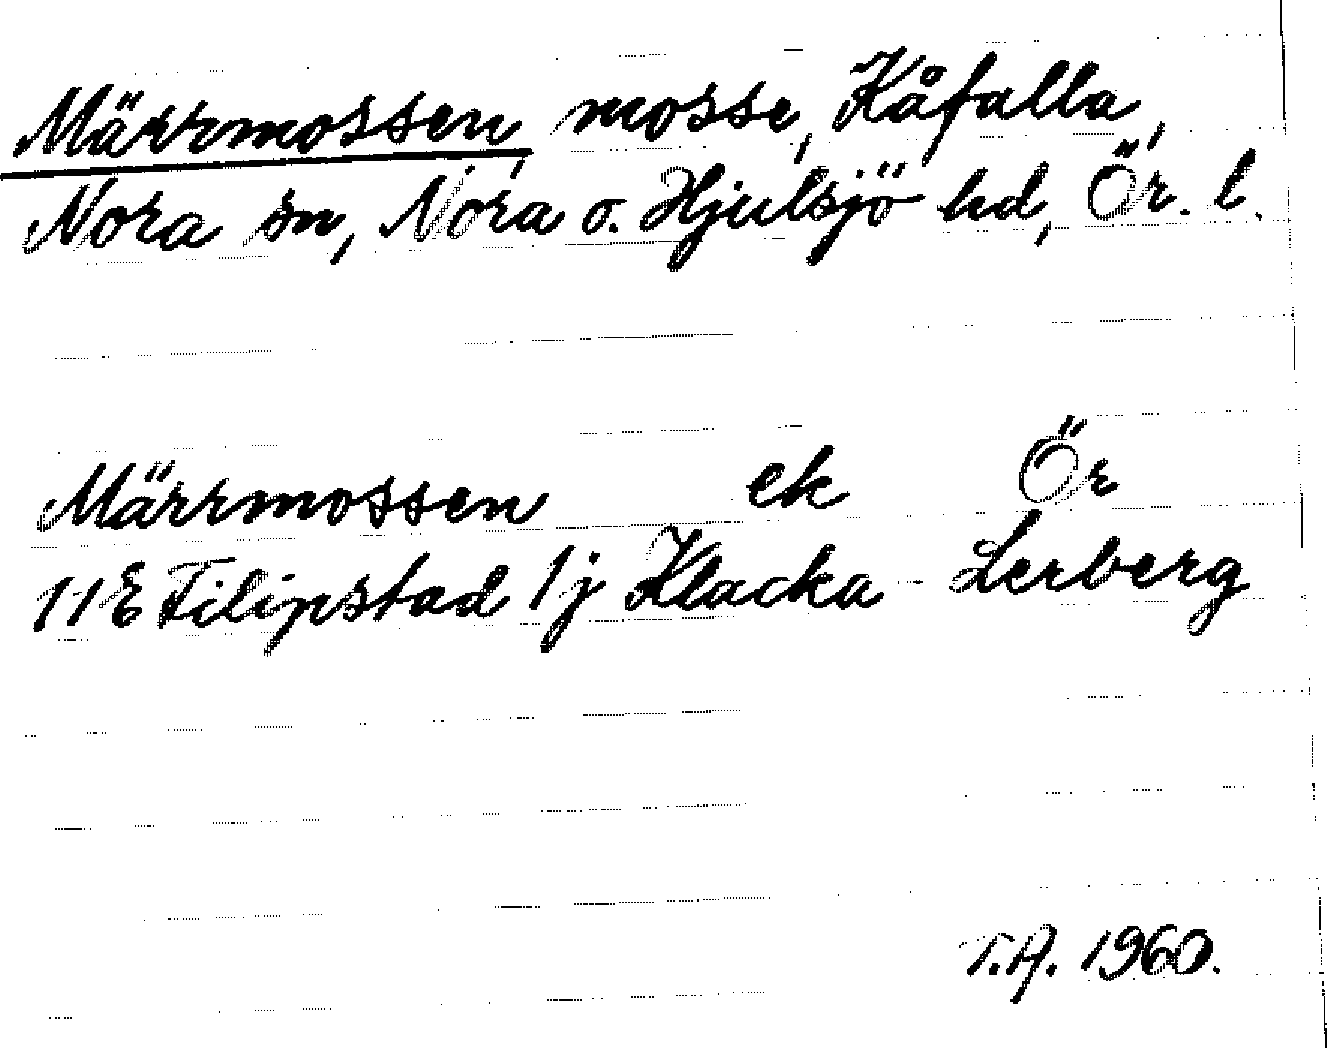 Märrmossen, mosse, Kåfalla,
Nora sn, Nora o. Hjulsjö hd, Ör. l.
Märrmossen ek Ör
11E Filipstad 1j Klacka - Lerberg
T.A. 1960.